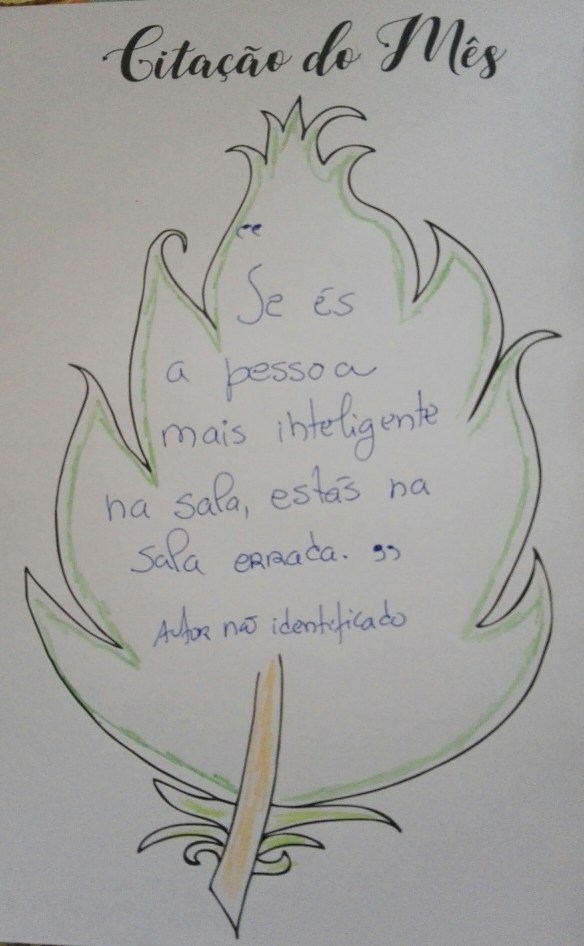 Citação do Mês
“
Se és
a pessoa
mais inteligente
na sala, estás na
sala errada. ”
Autor não identificado